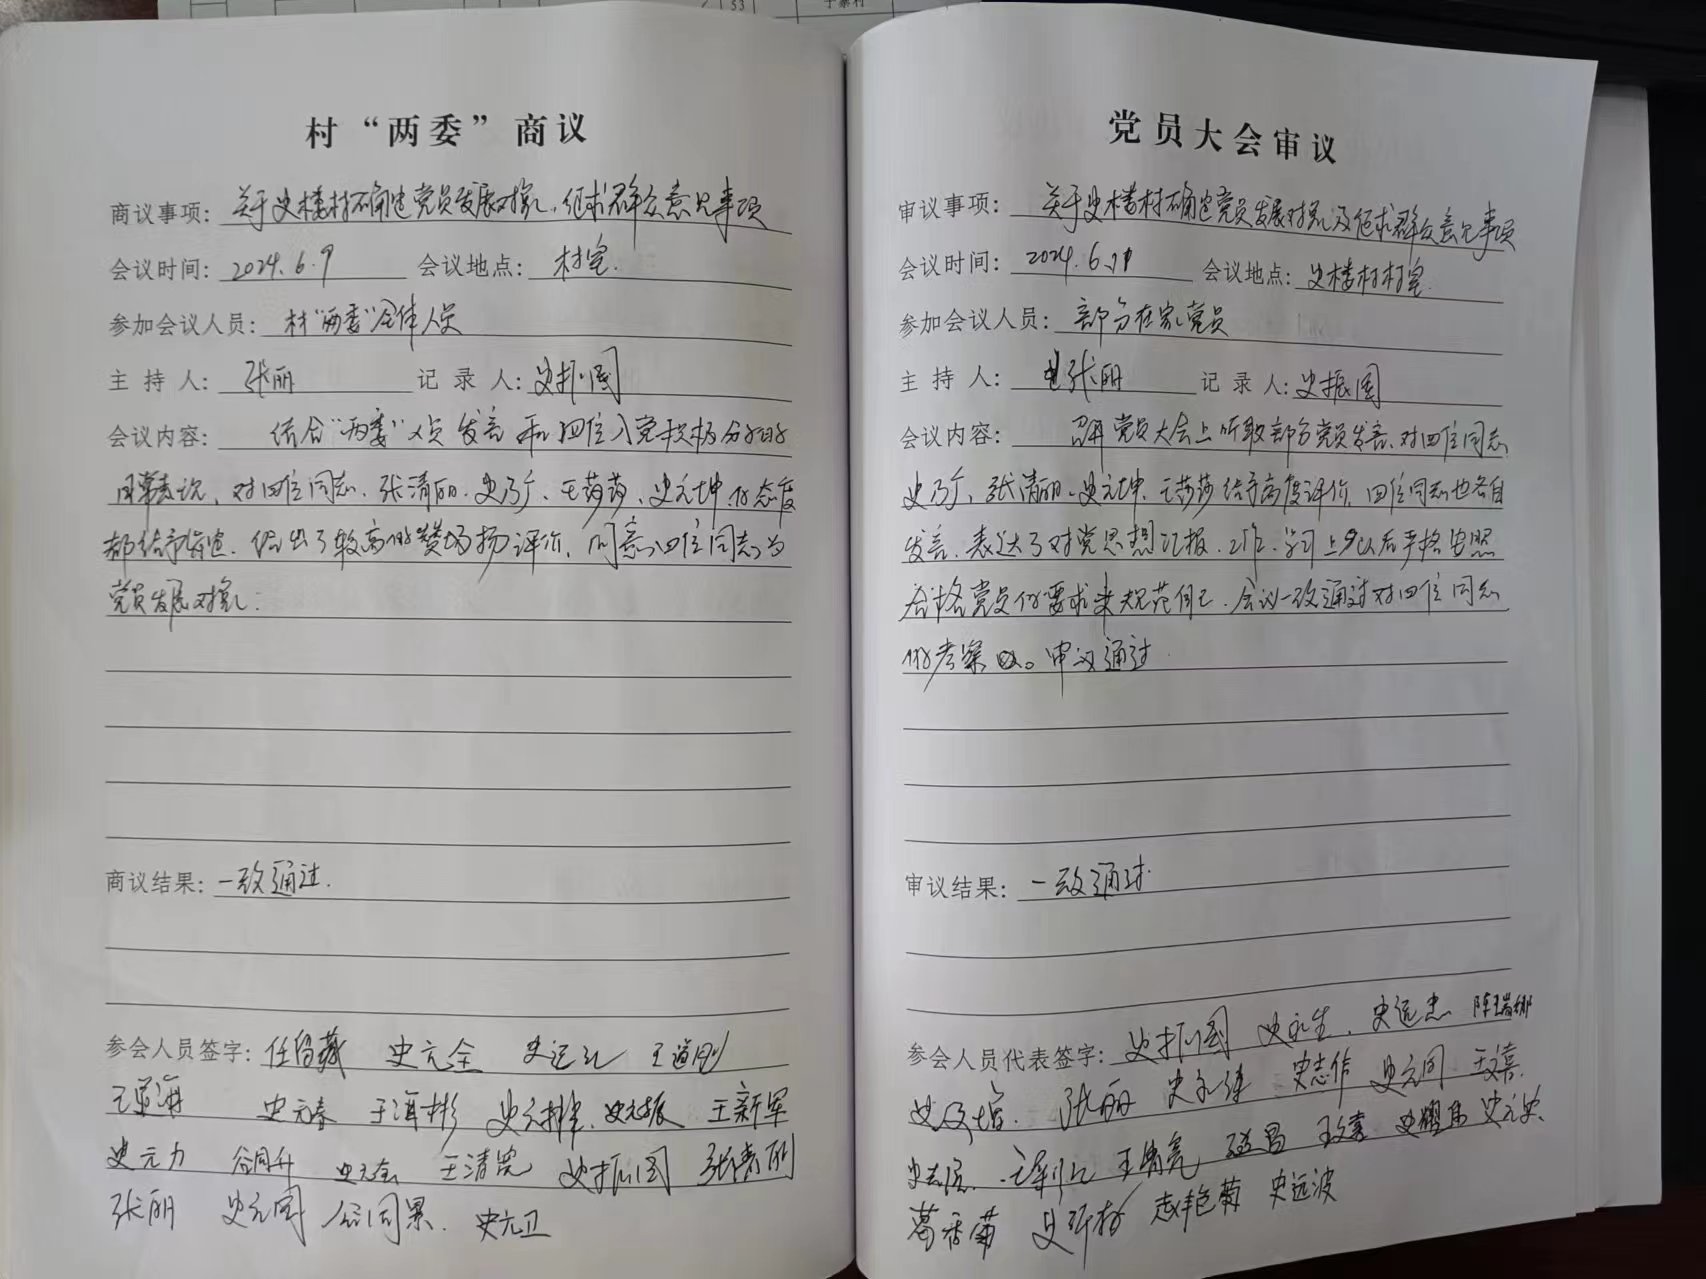 53
于寨村
村“两委”商议
商议事项: 关于史楼村确定党员发展对象、征求群众意见事项
会议时间: 2024.6.9 会议地点: 村室.
参加会议人员: 村“两委”全体人员
主 持 人: 张丽 记 录 人: 史振国
会议内容: 结合“两委”人员发言和四位入党积极分子的
日常表现, 对四位同志、张清丽、史乃广、王莎莎、史元坤的态度
都给予肯定. 给出了较高的赞扬评价, 同意四位同志为
党员发展对象.
商议结果: 一致通过.
参会人员签字: 史元全 王道刚
史元春 于海彬 史元振 王新军
史元力 谷同升 史元会 王清宪 史振国 张清丽
张丽 史元国 史元卫
党员大会审议
审议事项: 关于史楼村确定党员发展对象及征求群众意见事项
会议时间: 2024.6.11 会议地点: 史楼村村室.
参加会议人员: 部分在家党员
主 持 人: 张丽 记 录 人: 史振国
会议内容: 召开党员大会上听取部分党员发言、对四位同志
史乃广, 张清丽、史元坤、王莎莎给予高度评价, 四位同志也各自
发言、表达了对党思想汇报、工作、学习上以后严格按照
合格党员的要求来规范自己. 会议一致通过对四位同志
的考察。审议通过
审议结果: 一致通过.
参会人员代表签字: 史振国 史永生、史远忠
张丽 史志信 史元同
史远波